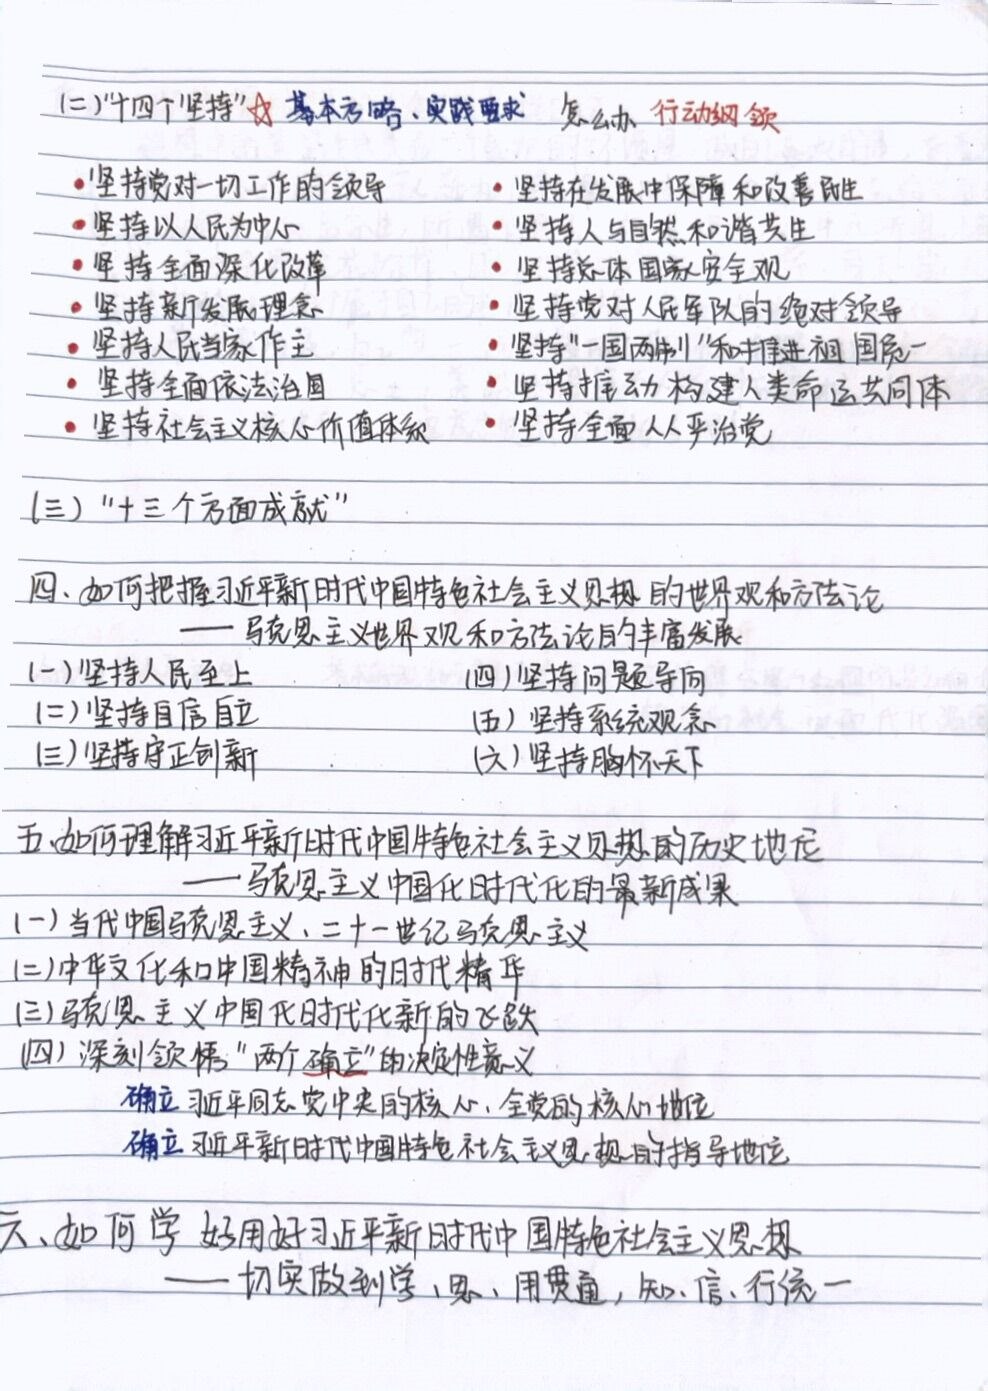 (二)"十四个坚持"☆ 基本方略、实践要求 怎么办 行动纲领
•坚持党对一切工作的领导
•坚持以人民为中心
•坚持全面深化改革
•坚持新发展理念
•坚持人民当家作主
•坚持全面依法治国
•坚持社会主义核心价值体系
•坚持在发展中保障和改善民生
•坚持人与自然和谐共生
•坚持总体国家安全观
•坚持党对人民军队的绝对领导
•坚持"一国两制"和推进祖国统一
•坚持推动构建人类命运共同体
•坚持全面从严治党
(三)"十三个方面成就"
四、如何把握习近平新时代中国特色社会主义思想的世界观和方法论
——马克思主义世界观和方法论的丰富发展
(一)坚持人民至上
(二)坚持自信自立
(三)坚持守正创新
(四)坚持问题导向
(五)坚持系统观念
(六)坚持胸怀天下
五、如何理解习近平新时代中国特色社会主义思想的历史地位
——马克思主义中国化时代化的最新成果
(一)当代中国马克思主义、二十一世纪马克思主义
(二)中华文化和中国精神的时代精华
(三)马克思主义中国化时代化新的飞跃
(四)深刻领悟"两个确立"的决定性意义
确立习近平同志党中央的核心、全党的核心地位
确立习近平新时代中国特色社会主义思想的指导地位
六、如何学好用好习近平新时代中国特色社会主义思想
——切实做到学、思、用贯通,知、信、行统一